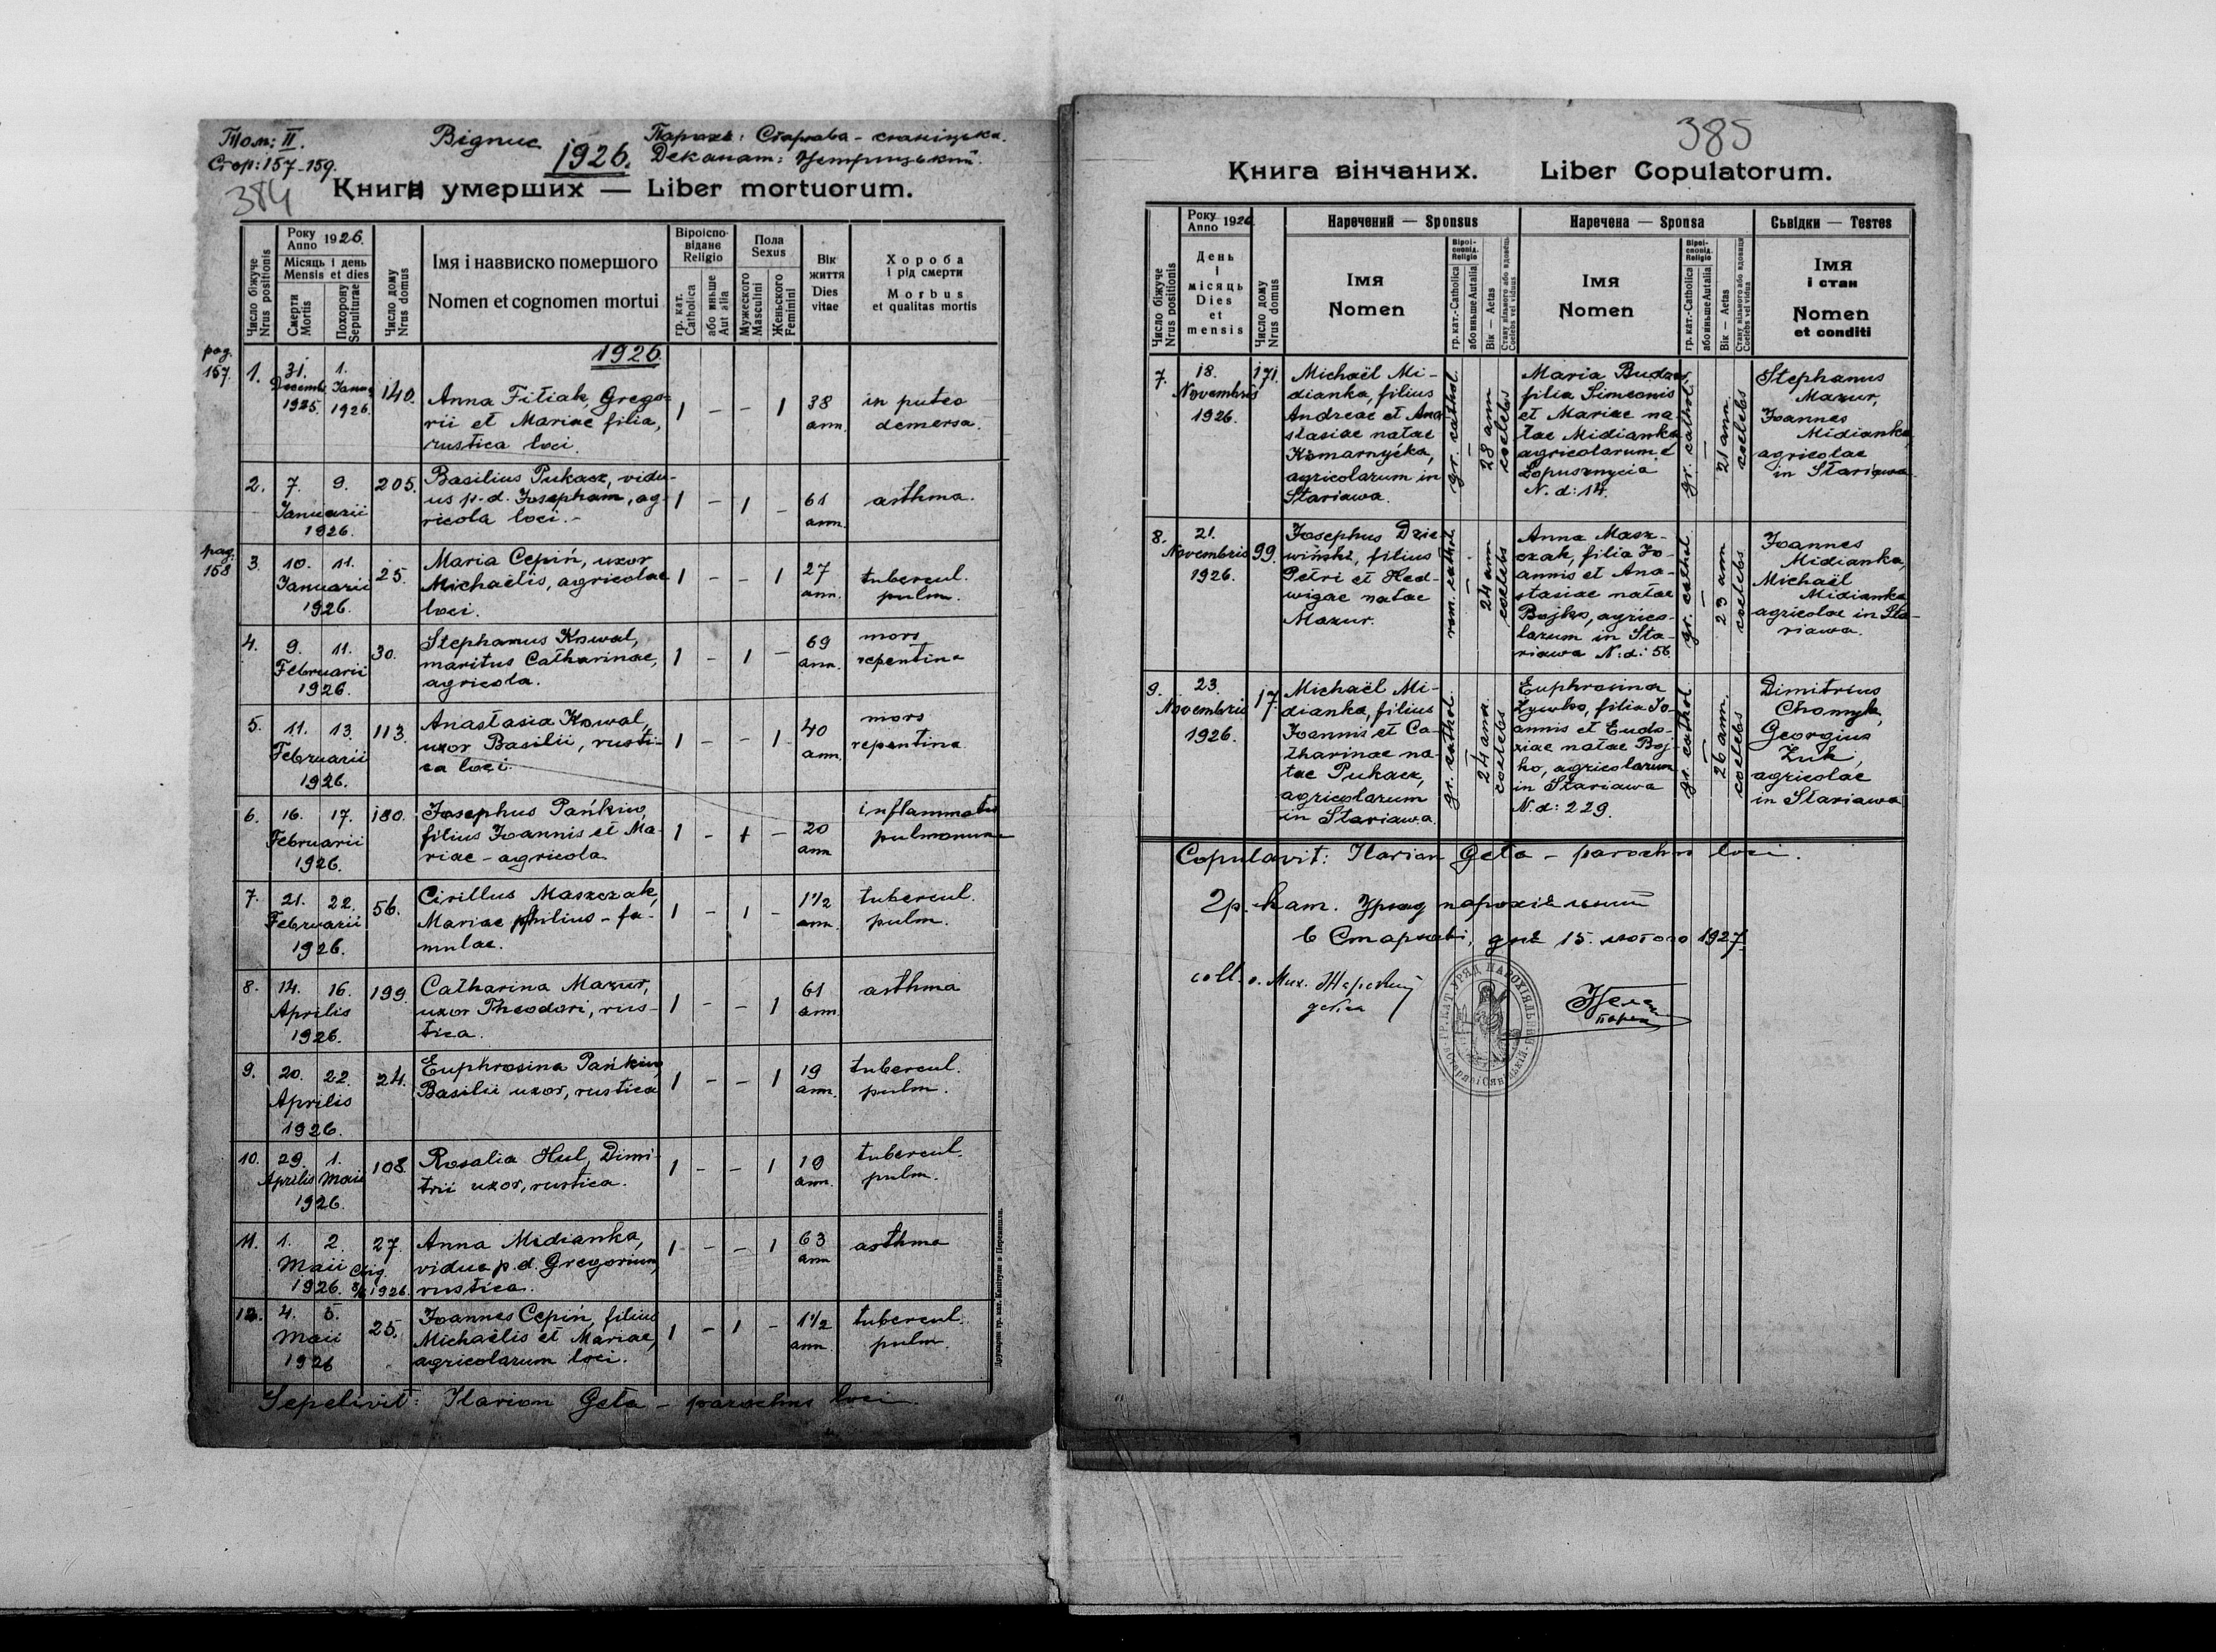 Том: II.
Стор: 157-159.
384
Відпис
1926.
Парохія: Старява - сяніцька.
Деканат: Устрицький.
Книга умерших — Liber mortuorum.
Число біжуче
Nrus positionis
Року
Anno 1926.
Місяць і день
Mensis et dies
Смерти
Mortis
Похорону
Sepulturae
Число дому
Nrus domus
Імя і назвиско помершого
Nomen et cognomen mortui
Віроіспо-
відане
Religio
гр. кат.
Catholica
або иньше
Aut alia
Пола
Sexus
Мужеского
Masculini
Женьского
Feminini
Вік
життя
Dies
vitae
Хороба
і рід смерти
Morbus
et qualitas mortis
1926.
pag.
157.
1.
31. Decemb. 1925.
1. Januar. 1926.
140.
Anna Fitiak, Grego-
rii et Mariae filia,
rustica loci.
1 - - 1
38
ann.
in puteo
demersa.
2.
7. 9.
Januarii
1926.
205.
Basilius Pukacz, vidu-
us p.d. Josepham, ag-
ricola loci.-
1 - 1 -
61
ann.
asthma.
pag.
158
3.
10. 11.
Januarii
1926.
25.
Maria Cepiń, uxor
Michaëlis, agricolae
loci.
1 - - 1
27
ann.
tubercul.
pulm.
4.
9. 11.
Februarii
1926.
30.
Stephanus Kowal,
maritus Catharinae,
agricola.
1 - 1 -
69
ann.
mors
repentina
5.
11. 13.
Februarii
1926.
113.
Anastasia Kowal,
uxor Basilii, rusti-
ca loci.
1 - - 1
40
ann.
mors
repentina
6.
16. 17.
Februarii
1926.
180.
Josephus Pańkiw,
filius Joannis et Ma-
riae - agricola
1 - 1 -
20
ann
inflammatio
pulmonum
7.
21. 22.
Februarii
1926.
56.
Cirillus Maszczak,
Mariae filius - fa-
mulae.
1 - 1 -
1 1/2
ann.
tubercul.
pulm.
8.
14. 16.
Aprilis
1926.
199.
Catharina Mazur,
uxor Theodori, rus-
tica.
1 - - 1
61
ann.
asthma
9.
20. 22.
Aprilis
1926.
24.
Euphrosina Pańkiw,
Basilii uxor, rustica
1 - - 1
19
ann.
tubercul.
pulm.
10.
29. 1.
Aprilis Maii
1926.
108
Rosalia Hul, Dimi-
trii uxor, rustica.
1 - - 1
19
ann.
tubercul.
pulm.
11.
1. 2.
Maii
1926.
27.
1926.
Anna Midianka,
vidua p.d. Gregorium,
rustica.
1 - - 1
63
ann
asthma
12.
4. 5.
Maii
1926
25.
Joannes Cepiń, filius
Michaëlis et Mariae,
agricolarum loci.
1 - 1 -
1 1/2
ann.
tubercul.
pulm.
Sepelivit: Ilarion Geta - parochus loci.
385
Книга вінчаних. Liber Copulatorum.
Число біжуче
Nrus positionis
Року
Anno 1926
День
і
місяць
Dies
et
mensis
Число дому
Nrus domus
Наречений — Sponsus
Імя
Nomen
Віроі-
сповід.
Religio
гр. кат.-Catholica
або иньше Aut alia
Вік — Aetas
Стану вільного або вдовець
Coelebs vel viduus
Наречена — Sponsa
Імя
Nomen
Віроі-
сповід.
Religio
гр. кат.-Catholica
або иньше Aut alia
Вік — Aetas
Стану вільного або вдовиця
Coelebs vel vidua
Сьвідки — Testes
Імя
і стан
Nomen
et conditi
7.
18.
Novembris
1926.
171.
Michaël Mi-
dianka, filius
Andreae et Ana-
stasiae natae
Komarnyćka,
agricolarum in
Stariawa.
gr. cathol.
-
28 ann
coelebs
Maria Budaz
filia Simeonis
et Mariae na-
tae Midianka
agricolarum e
Łopusznycia
N. d: 14.
gr. cathol.
-
21 ann.
coelebs
Stephanus
Mazur,
Joannes
Midianka,
agricolae
in Stariawa
8.
21.
Novembris
1926.
99.
Josephus Dzie-
wiński, filius
Petri et Hed-
wigae natae
Mazur.
rom. cathol.
-
24 ann
coelebs
Anna Masz-
czak, filia Jo-
annis et Ana-
stasiae natae
Bojko, agrico-
larum in Sta-
riawa N: d: 56.
gr. cathol.
-
23 ann
coelebs
Joannes
Midianka,
Michaël
Midianka
agricolae in Sta-
riawa.
9.
23.
Novembris
1926.
17.
Michaël Mi-
dianka, filius
Joannis et Ca-
tharinae na-
tae Pukacz,
agricolarum
in Stariawa.
gr. cathol.
-
24 ann.
coelebs
Euphrosina
Żywko, filia Jo-
annis et Eudo-
xiae natae Boj-
ko, agricolarum
in Stariawa
N. d: 229.
gr. cathol.
-
26 ann.
coelebs
Dimitrius
Chomyk,
Georgius
Żuk,
agricolae
in Stariawa
Copulavit: Ilarion Geta - parochus loci.
Гр.-кат. Уряд парохіяльний
в Староваі, дня 15. лютого 1927.
coll. о. Мих.
декан
ГР. КАТ. УРЯД ПАРОХІЯЛЬНИЙ
Друкарня гр. кат. Капітули в Перемишли.